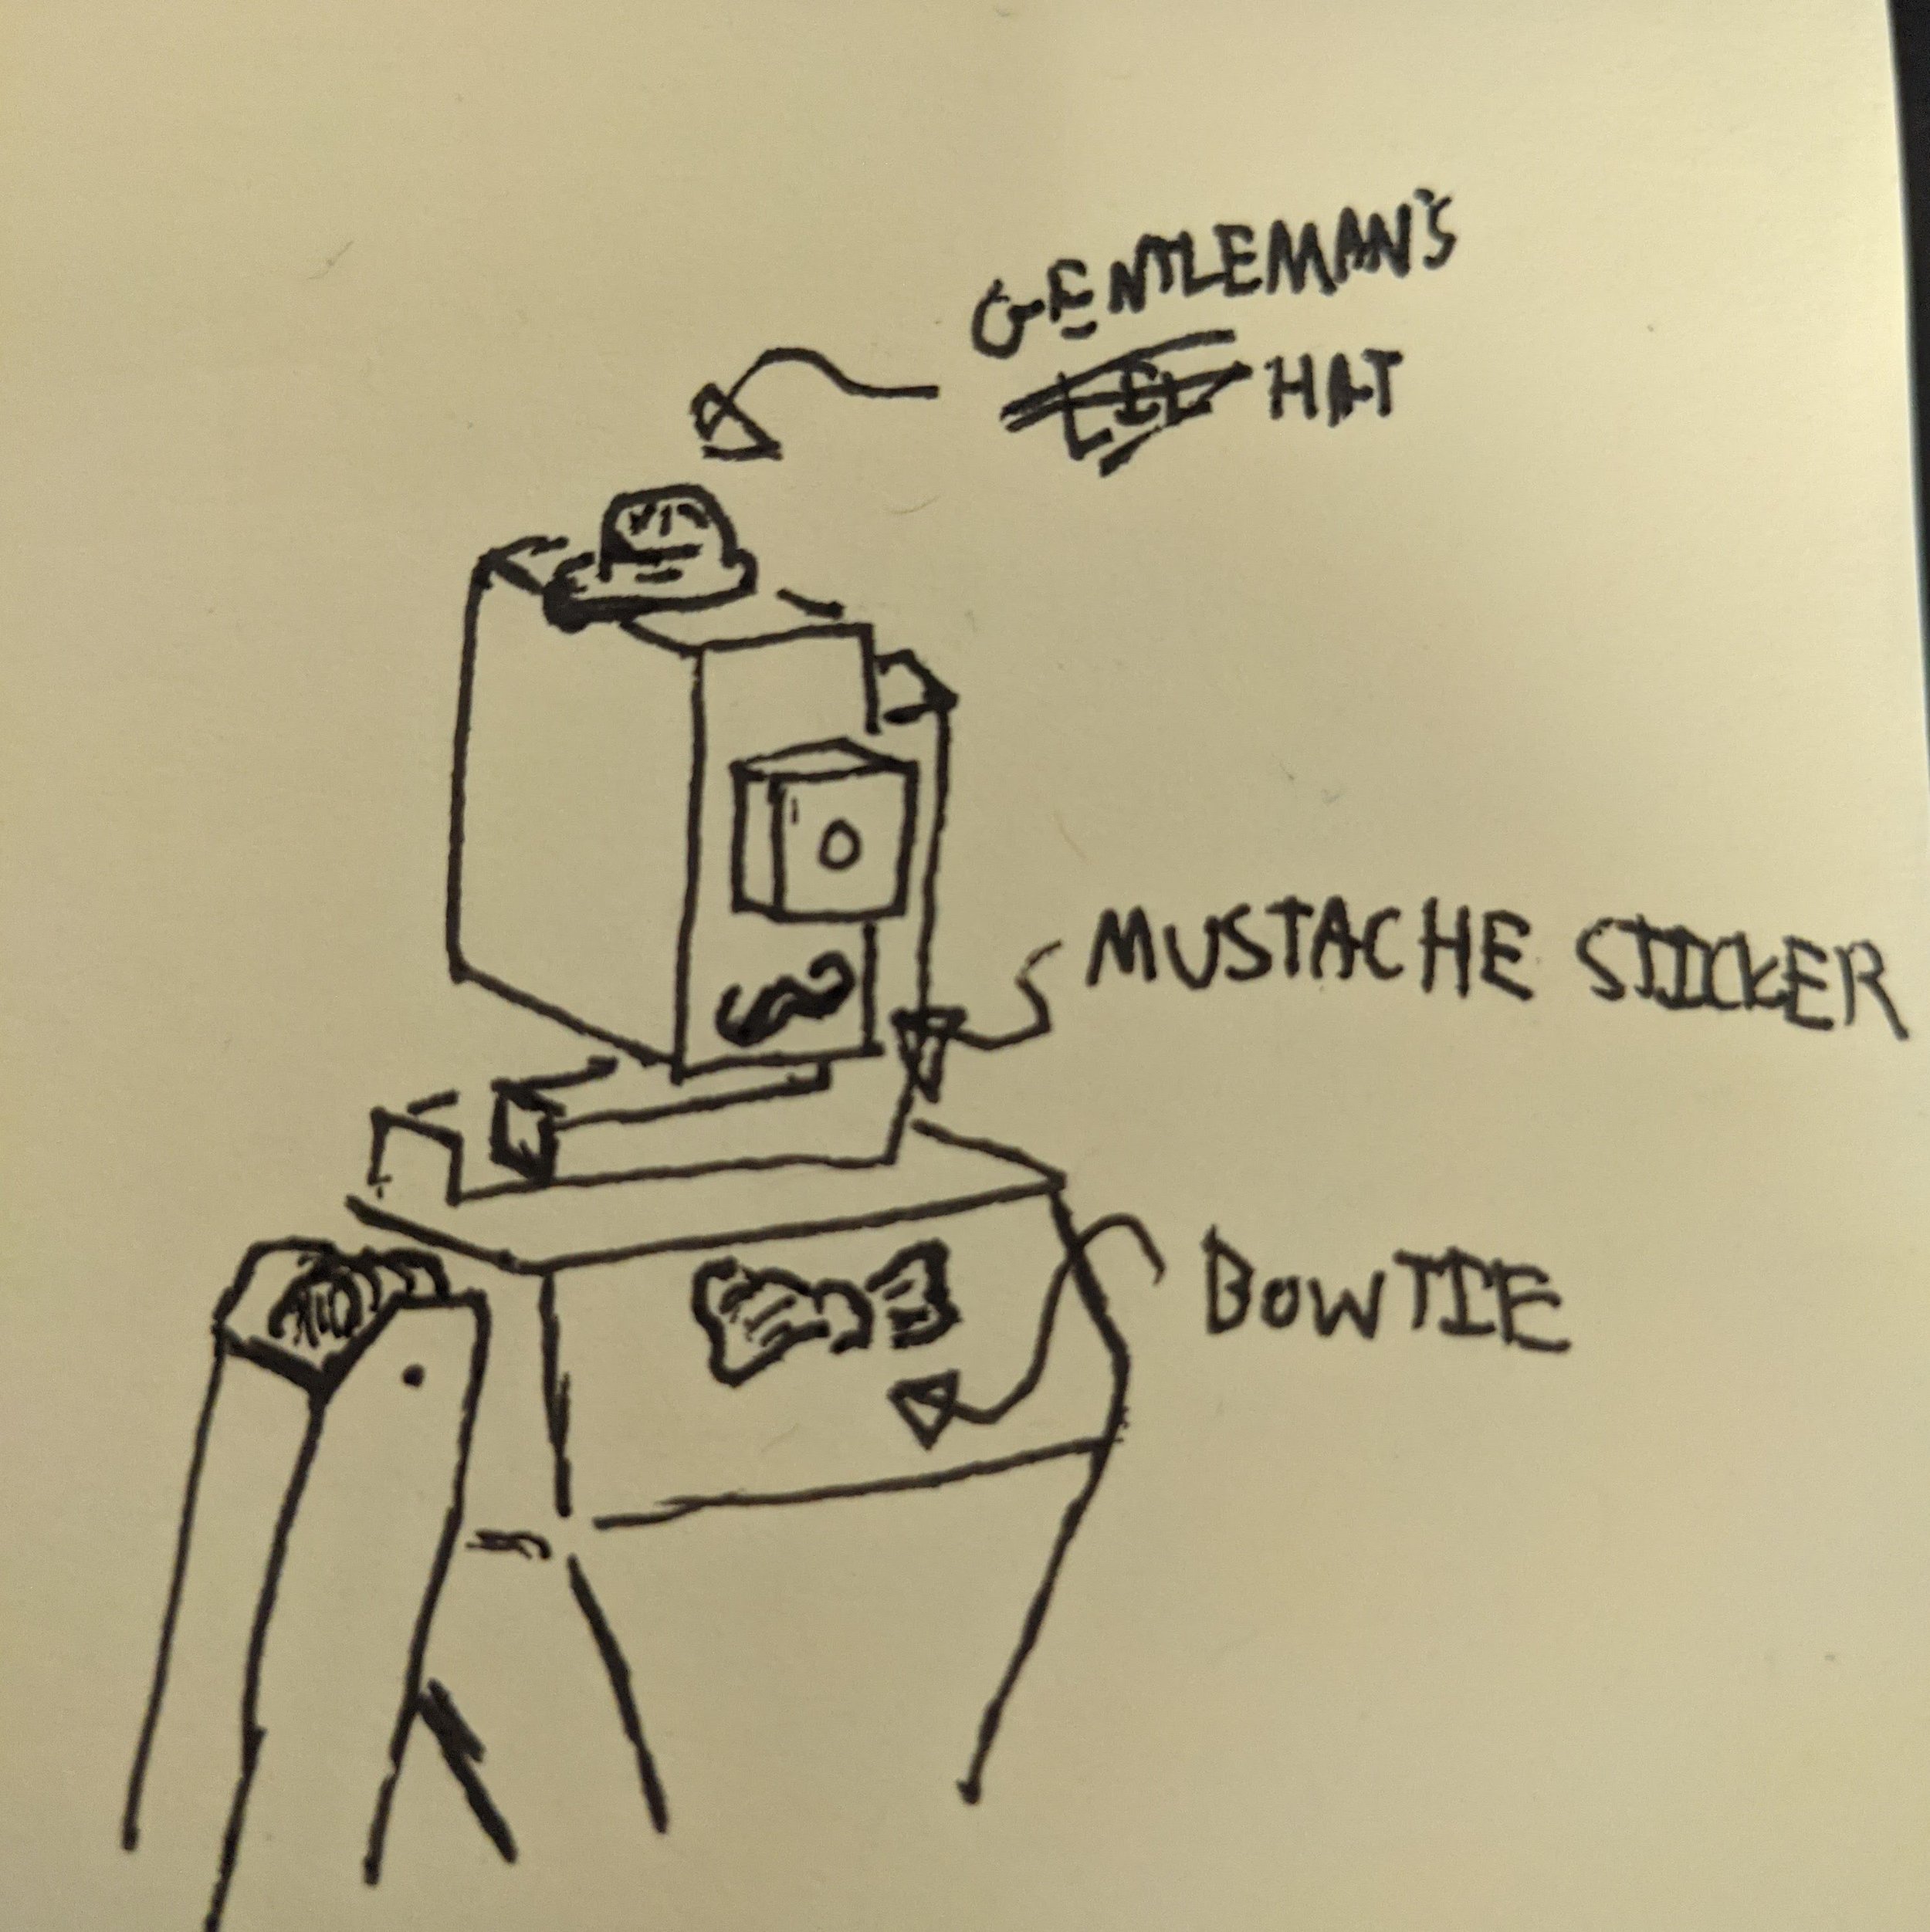 GENTLEMAN'S
LIL HAT
MUSTACHE STICKER
BOWTIE